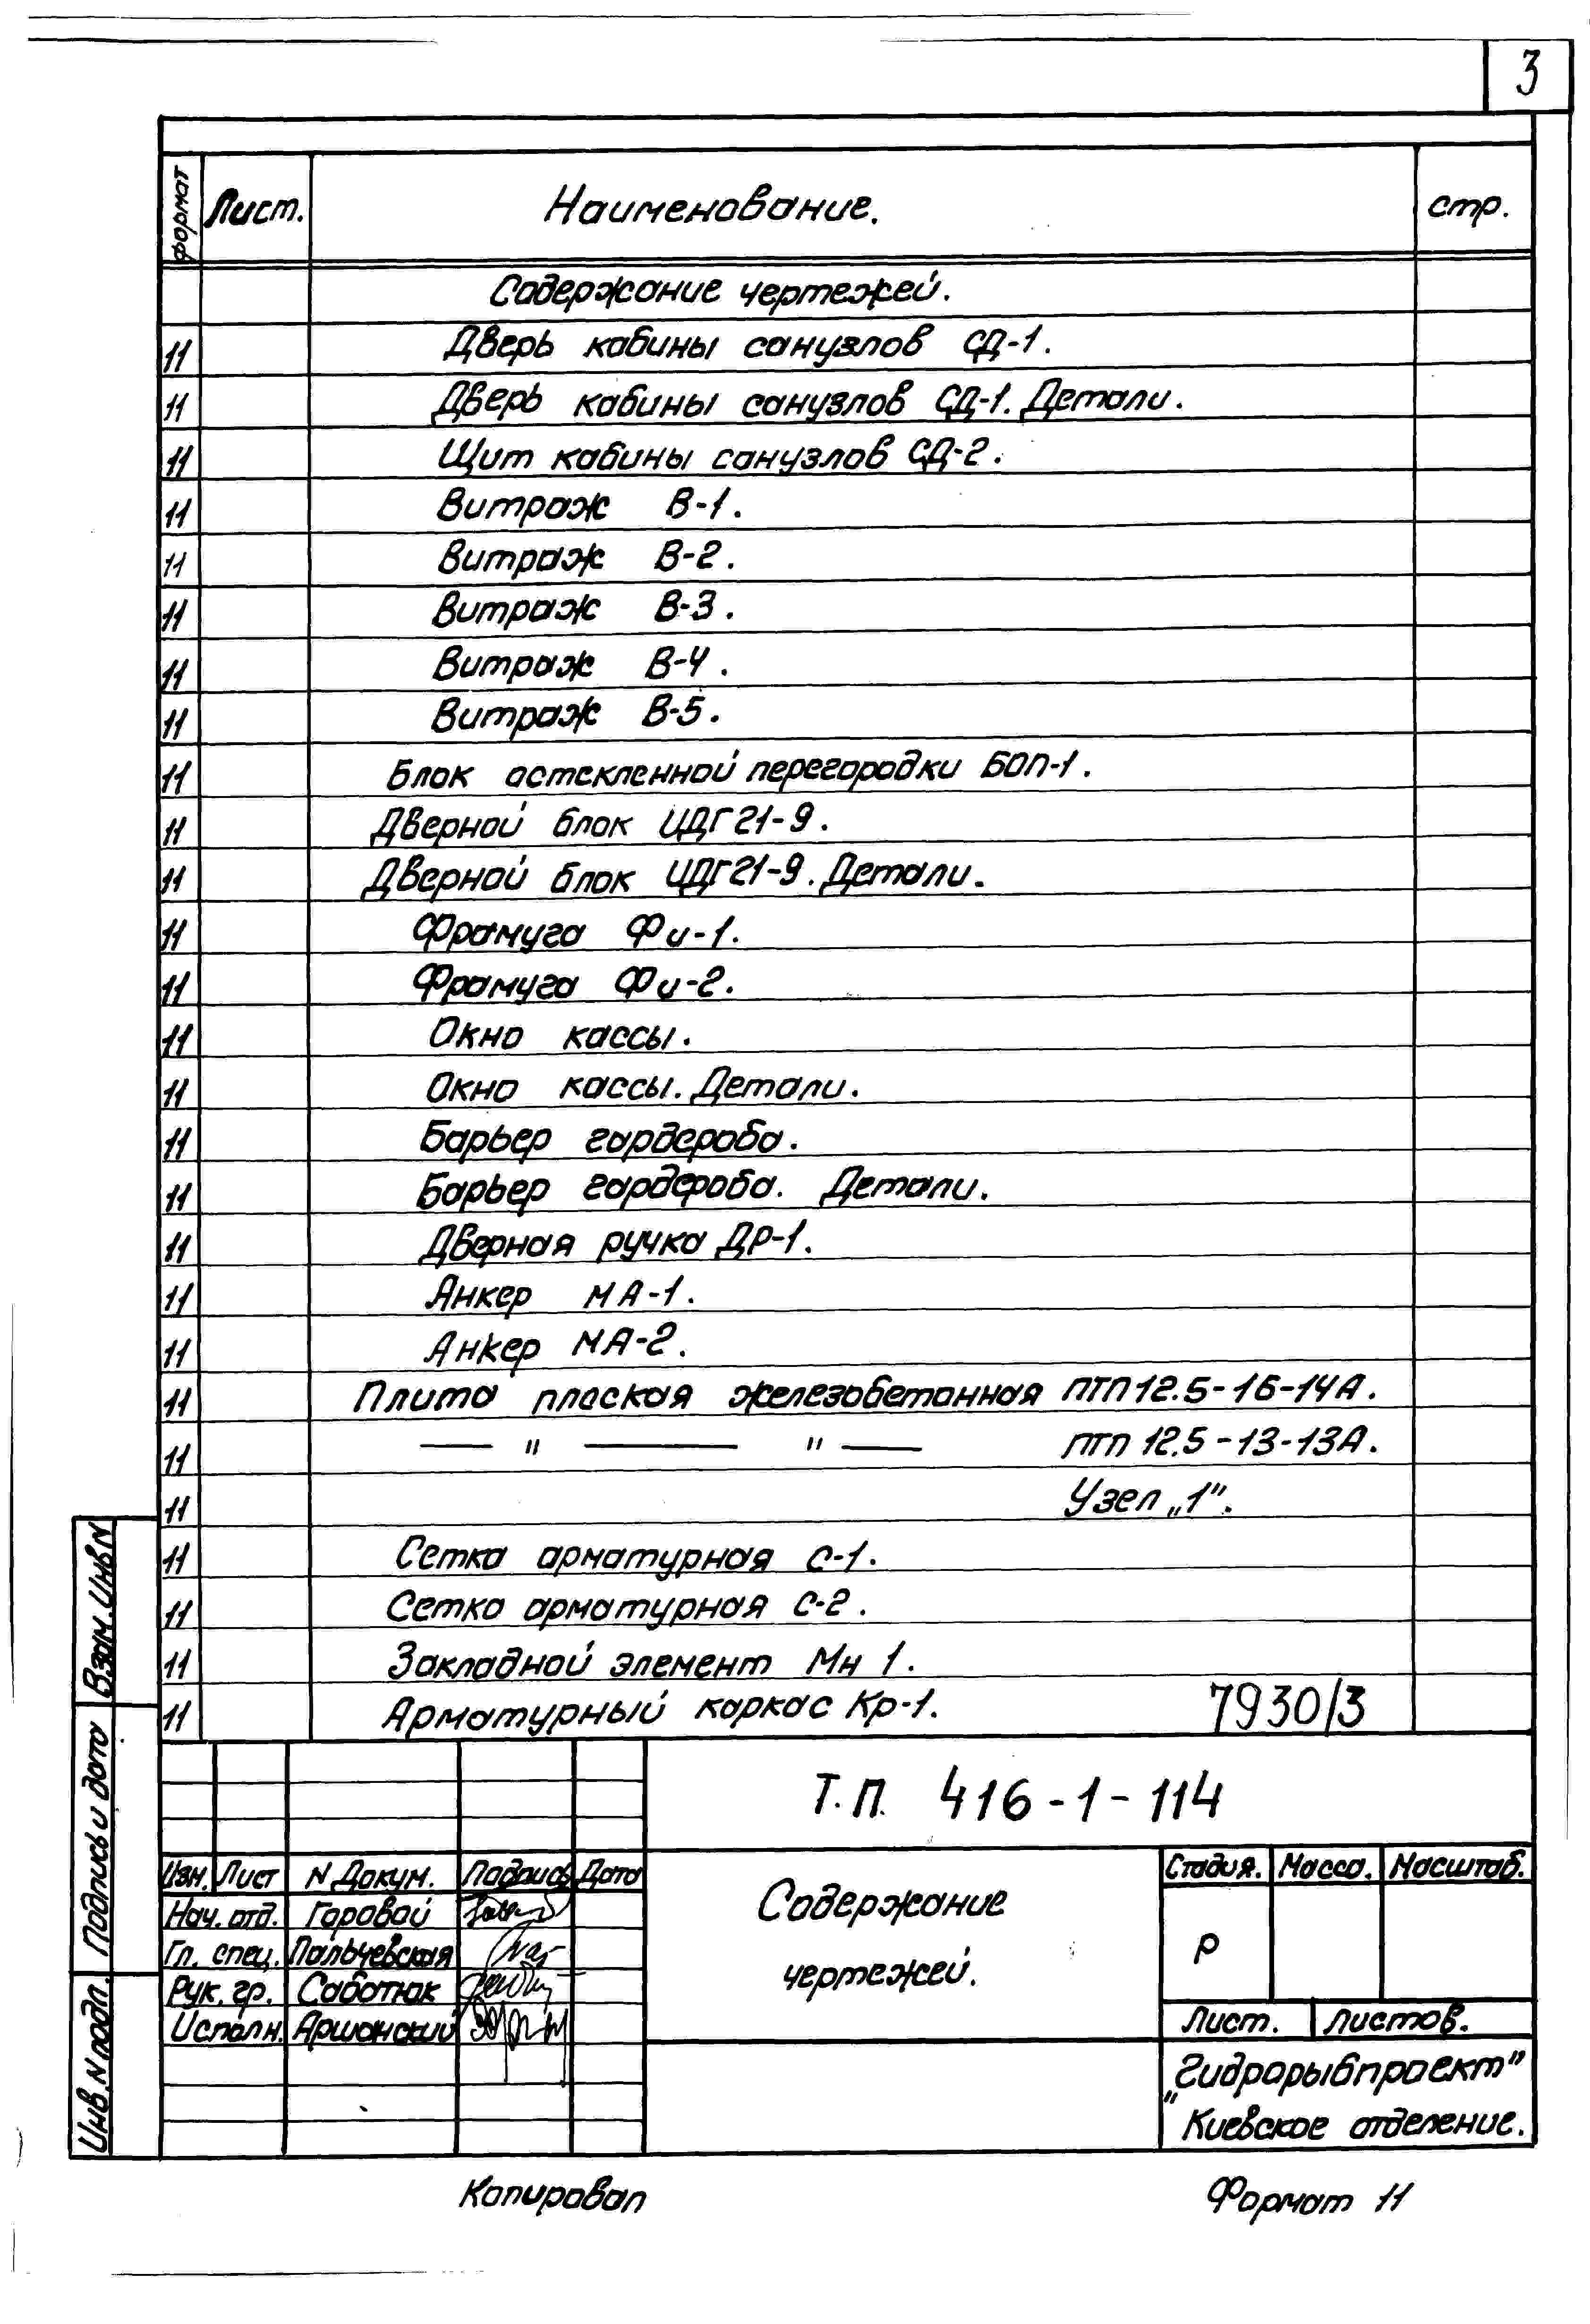 3
формат Лист. Наименование. стр.
Содержание чертежей.
11 Дверь кабины санузлов СД-1.
11 Дверь кабины санузлов СД-1. Детали.
11 Щит кабины санузлов СД-2.
11 Витраж В-1.
11 Витраж В-2.
11 Витраж В-3.
11 Витраж В-4.
11 Витраж В-5.
11 Блок остекленной перегородки БОП-1.
11 Дверной блок ЩДГ21-9.
11 Дверной блок ЩДГ21-9. Детали.
11 Фрамуга Фи-1.
11 Фрамуга Фи-2.
11 Окно кассы.
11 Окно кассы. Детали.
11 Барьер гардероба.
11 Барьер гардероба. Детали.
11 Дверная ручка ДР-1.
11 Анкер МА-1.
11 Анкер МА-2.
11 Плита плоская железобетонная ПТП12.5-16-14А.
11 — " — " — ПТП 12.5-13-13А.
11 Узел „1".
11 Сетка арматурная С-1.
11 Сетка арматурная С-2.
11 Закладной элемент Мн 1.
11 Арматурный каркас Кр-1. 7930/3
Т.П. 416-1-114
Изм. Лист N Докум. Подпись Дата
Нач. отд. Горовой
Гл. спец. Пальчевская
Рук. гр. Саботюк
Исполн. Аршанский
Содержание
чертежей.
Стадия. Масса. Масштаб.
Р
Лист. Листов.
„Гидрорыбпроект"
Киевское отделение.
Взам. Инв N
Подпись и дата
Инв. N подл.
Копировал Формат 11